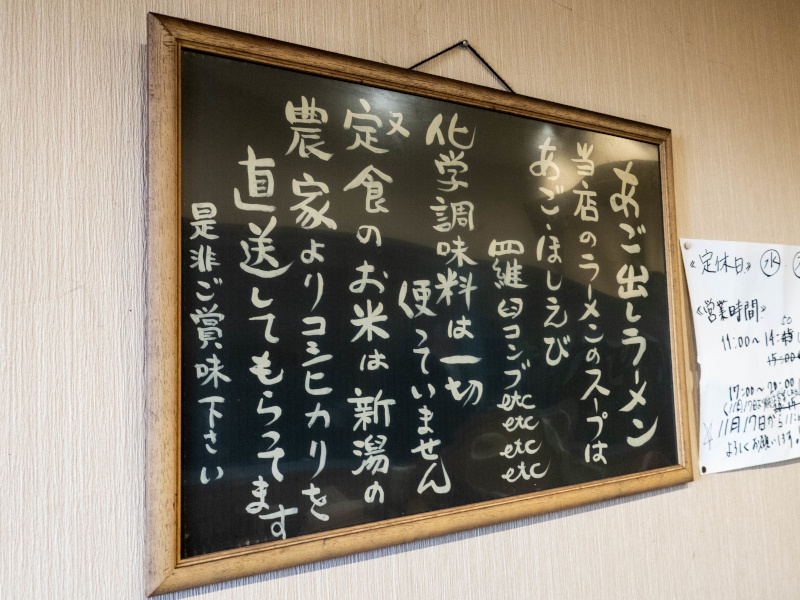 あご出しラーメン
当店のラーメンのスープは
あご・ほしえび
羅臼コンブetc
etc
etc
etc
化学調味料は一切
使っていません
又
定食のお米は新潟の
農家よりコシヒカリを
直送してもらってます
是非ご賞味下さい
《定休日》㊌
《営業時間》
11:00〜14:
50
15:00
17:00〜20:00
11月17日から11:
よろしくお願いします